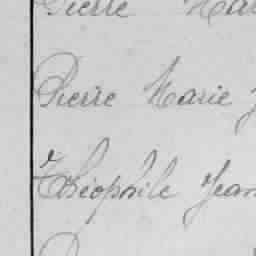 Pierre Mar
Pierre Marie J
Théophile Jean